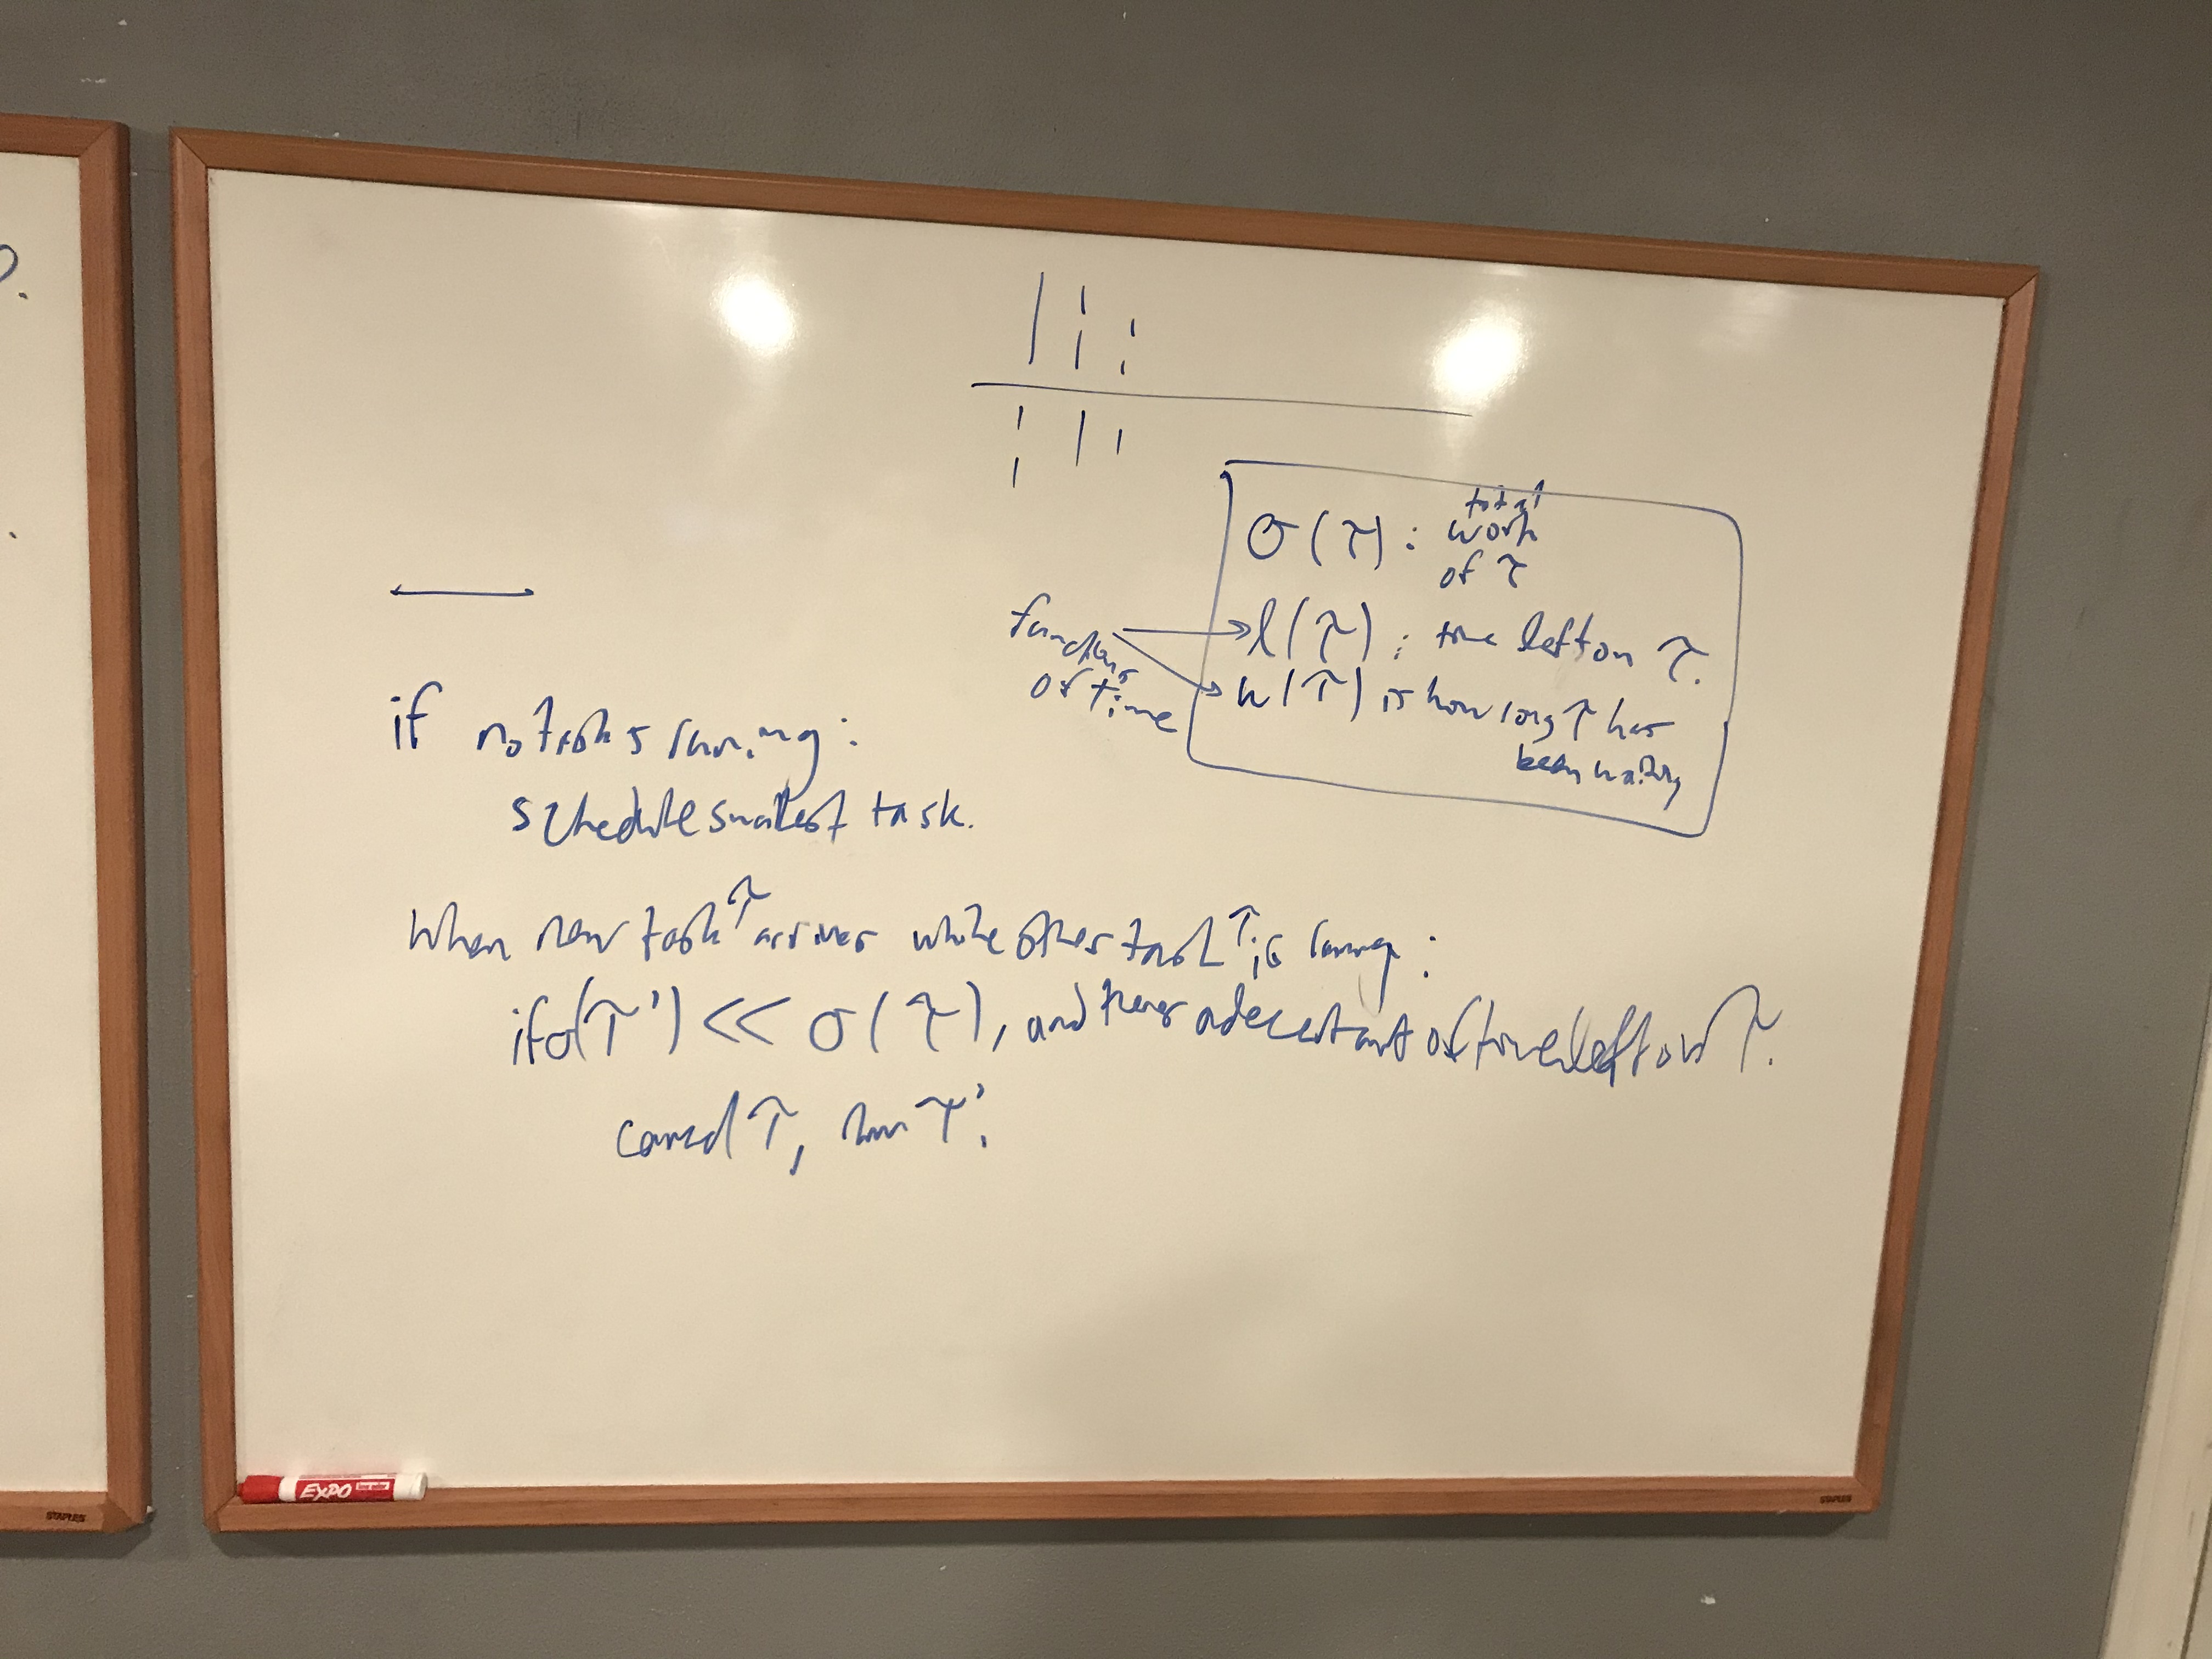 σ(τ): total work
of τ
functions
of time
l(τ): time left on τ.
w(τ) is how long τ has
been waiting
if no tasks running:
schedule smallest task.
When new task τ arrives while other task τ is running:
if σ(τ') << σ(τ), and theres a decent amt of time left on τ.
cancel τ, run τ'.
EXPO
STAPLES
STAPLES